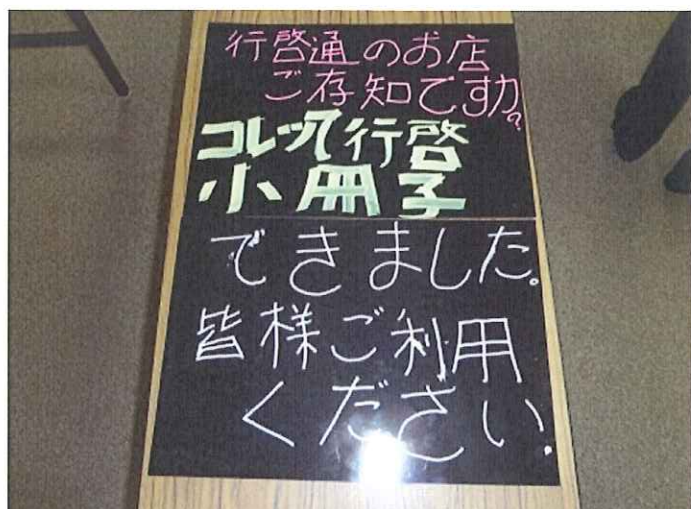 行啓通のお店
ご存知ですか?
コレって行啓
小冊子
できました。
皆様ご利用
ください。